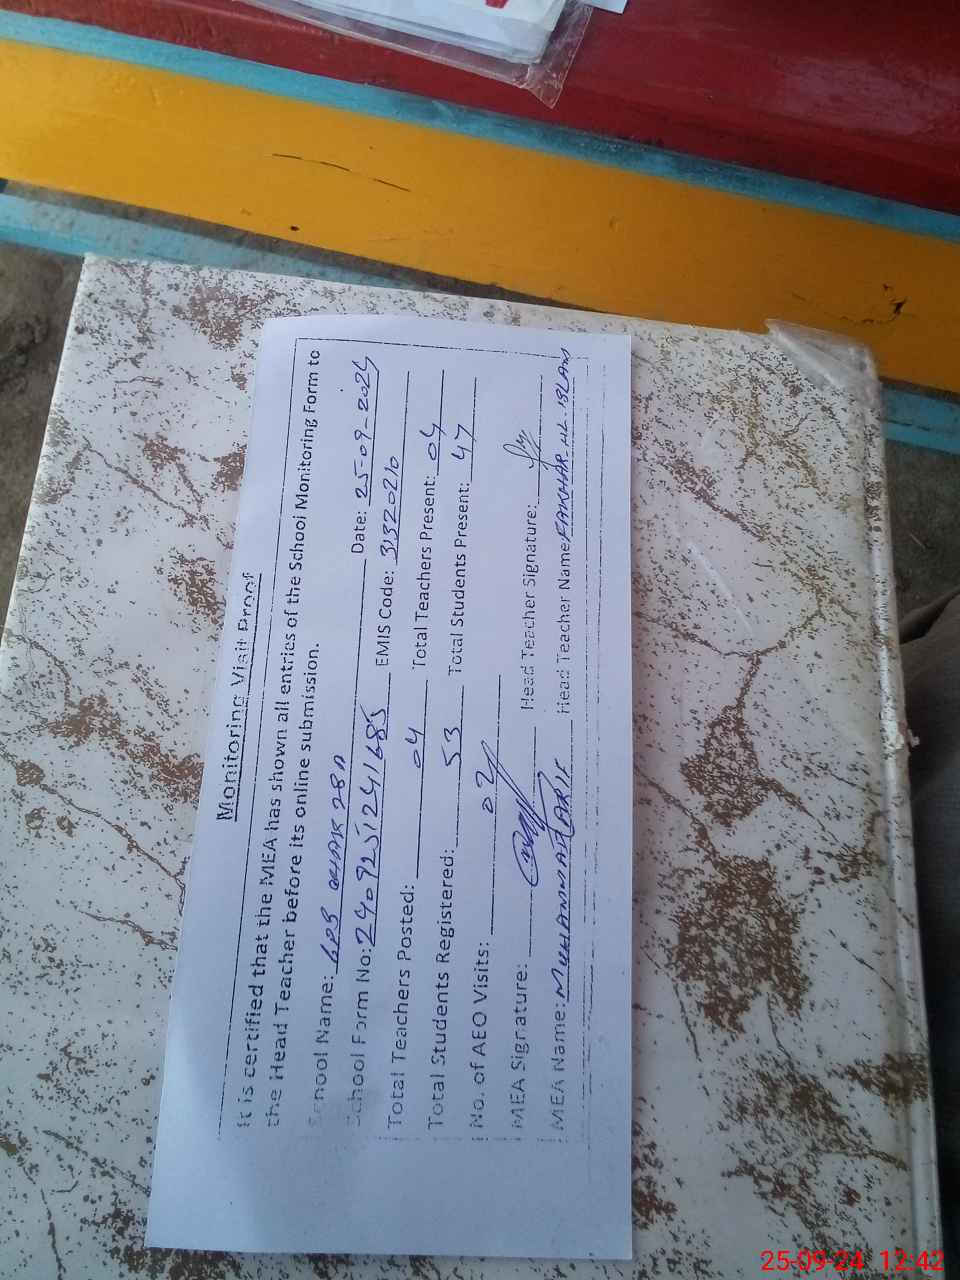 Monitoring Visit Proof
It is certified that the MEA has shown all entries of the School Monitoring Form to
the Head Teacher before its online submission.
School Name: GPS 28A Date: 25-09-2024
School Form No: 240925124168 EMIS Code: 31320210
Total Teachers Posted: 04 Total Teachers Present: 04
Total Students Registered: 53 Total Students Present: 47
No. of AEO Visits: 02
MEA Signature: Head Teacher Signature:
MEA Name: MUHAMMAD TARIF Head Teacher Name: FAKHAR-UL-ISLAM
25-09-24 12:42